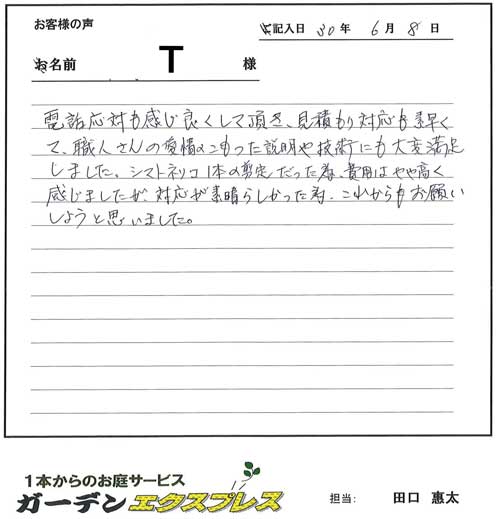 お客様の声
記入日 30年 6月 8日
お名前 T 様
電話応対も感じ良くして頂き、見積もり対応も素早く
て、職人さんの愛情のこもった説明や技術にも大変満足
しました。シマトネリコ1本の剪定だった為、費用はやや高く
感じましたが、対応が素晴らしかった為、これからもお願い
しようと思いました。
1本からのお庭サービス
ガーデンエクスプレス
担当: 田口 惠太